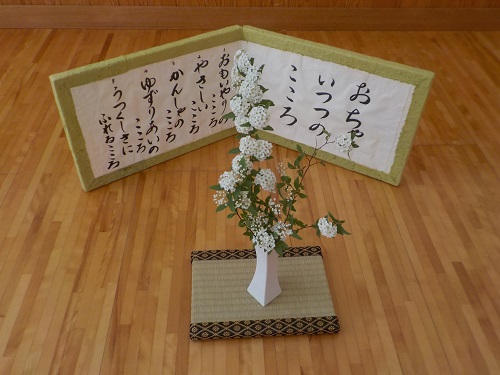 おちゃ
いつつの
こころ
一おもいやりの
こころ
一やさしい
こころ
一かんしゃの
こころ
一ゆずりあいの
こころ
一うつくしさに
ふれるこころ